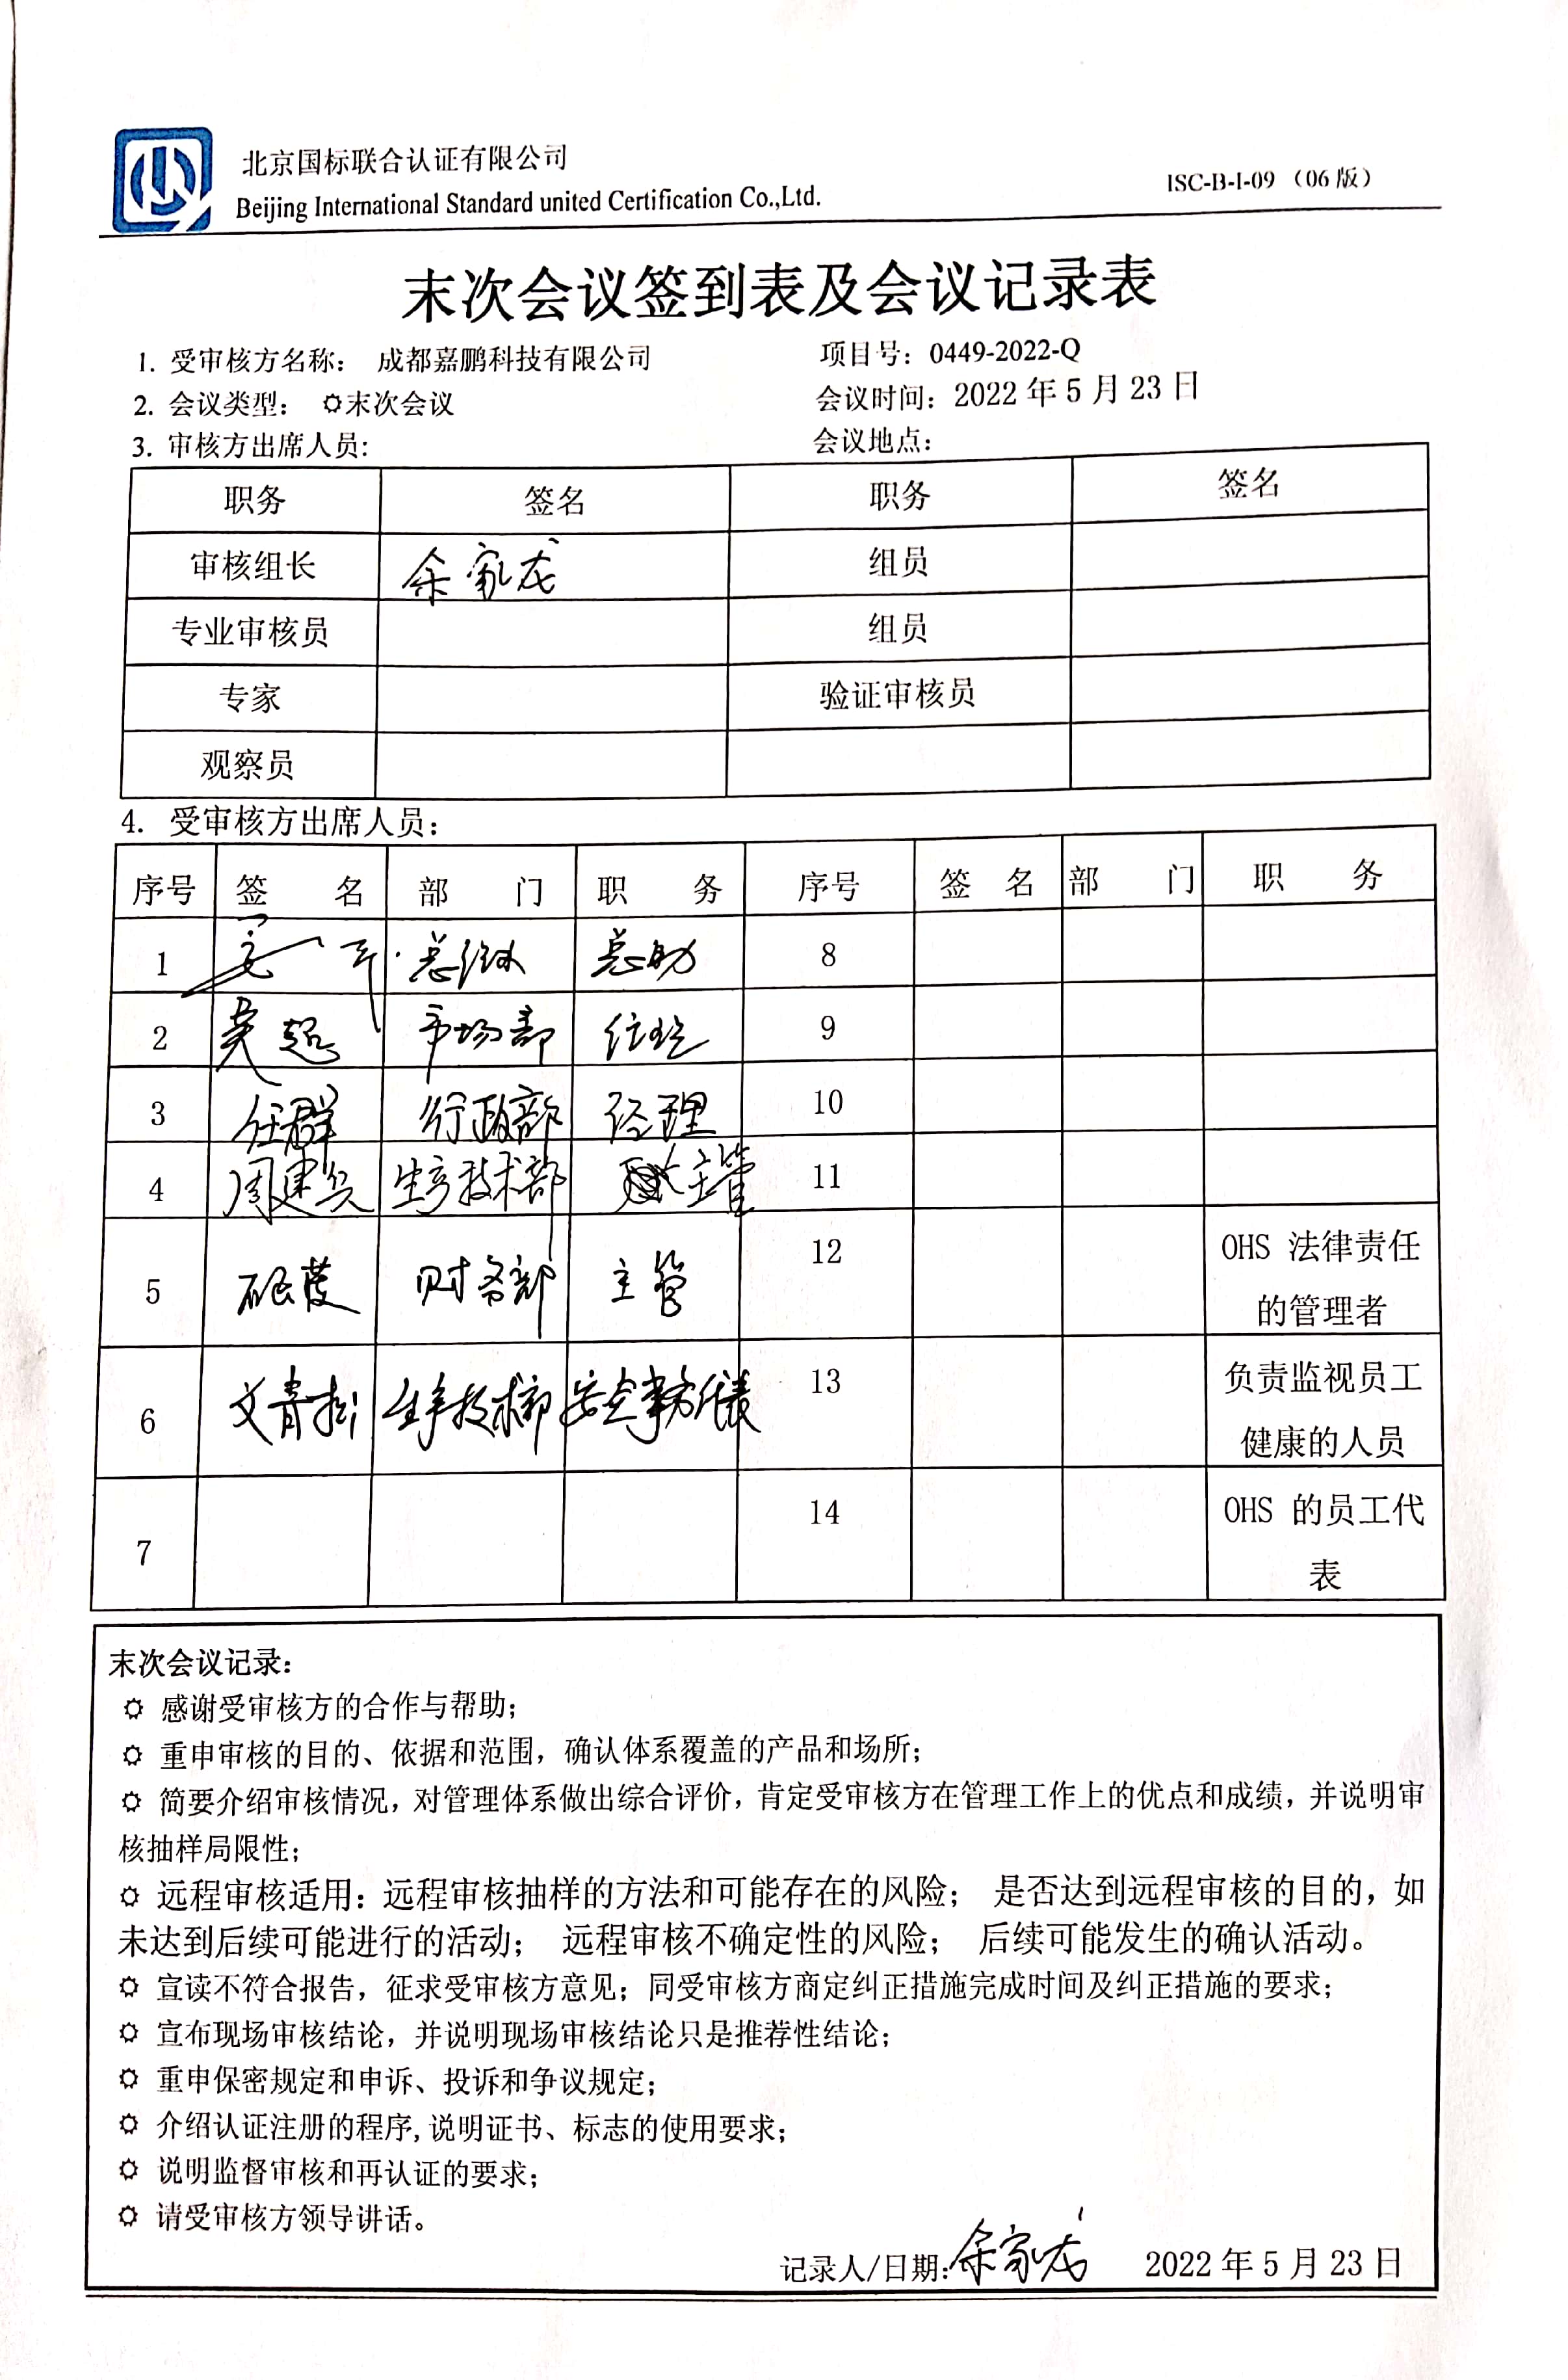 北京国标联合认证有限公司
Beijing International Standard united Certification Co.,Ltd.
ISC-B-I-09（06版）
末次会议签到表及会议记录表
1. 受审核方名称： 成都嘉鹏科技有限公司 项目号：0449-2022-Q
2. 会议类型： 末次会议 会议时间：2022年5月23日
3. 审核方出席人员: 会议地点：
职务 签名 职务 签名
审核组长 余家龙 组员
专业审核员 组员
专家 验证审核员
观察员
4. 受审核方出席人员：
序号 签 名 部 门 职 务 序号 签 名 部 门 职 务
1 总助 8
2 市场部 经理 9
3 任群 行政部 经理 10
4 周建兵 生产技术部 主管 11
5 财务部 主管 12 OHS 法律责任
的管理者
6 文青松 生产技术部 安全事务代表 13 负责监视员工
健康的人员
7 14 OHS 的员工代
表
末次会议记录：
感谢受审核方的合作与帮助；
重申审核的目的、依据和范围，确认体系覆盖的产品和场所；
简要介绍审核情况，对管理体系做出综合评价，肯定受审核方在管理工作上的优点和成绩，并说明审
核抽样局限性；
远程审核适用：远程审核抽样的方法和可能存在的风险； 是否达到远程审核的目的，如
未达到后续可能进行的活动； 远程审核不确定性的风险； 后续可能发生的确认活动。
宣读不符合报告，征求受审核方意见；同受审核方商定纠正措施完成时间及纠正措施的要求；
宣布现场审核结论，并说明现场审核结论只是推荐性结论；
重申保密规定和申诉、投诉和争议规定；
介绍认证注册的程序,说明证书、标志的使用要求；
说明监督审核和再认证的要求；
请受审核方领导讲话。
记录人/日期:余家龙 2022年5月23日